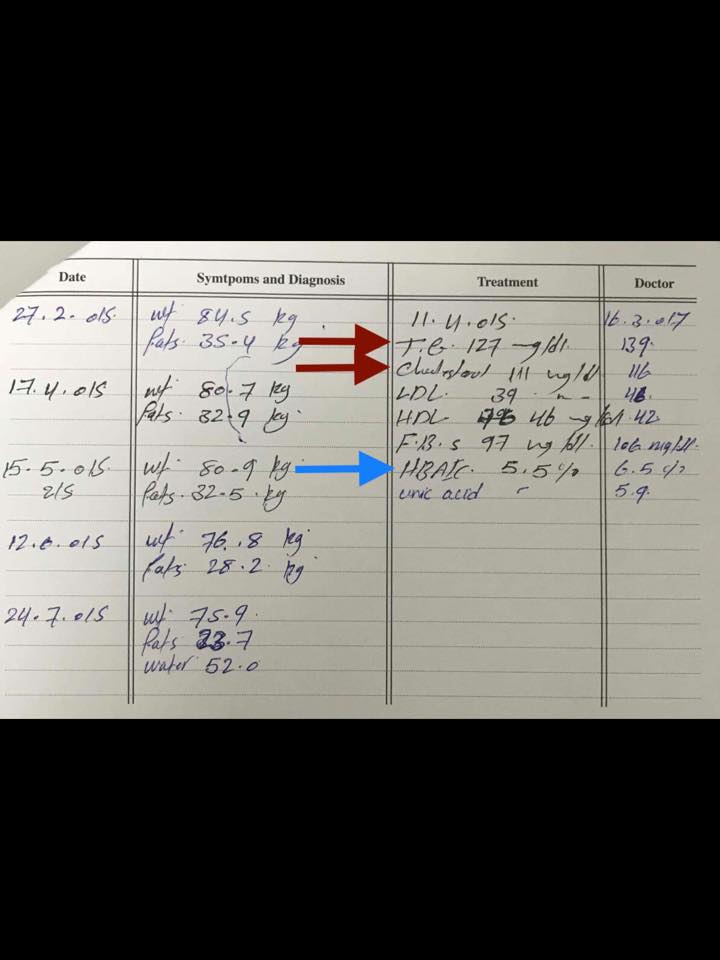 Date Symtpoms and Diagnosis Treatment Doctor
27.2.015 wt 84.5 kg 11.4.015 16.3.017
Fats 35.4 kg T.G. 127 mg/dl 139
111 mg/dl 116
17.4.015 wt 80.7 kg LDL 39
Fats 32.9 kg HDL 46 mg/dl 42
F.B.S 97 mg/dl 106 mg/dl
15.5.015 wt 80.9 kg HBAIC. 5.5% 6.5%
Fats 32.5 kg uric acid 5.9
12.6.015 wt 76.8 kg
Fats 28.2 kg
24.7.015 wt 75.9
Fats .7
water 52.0